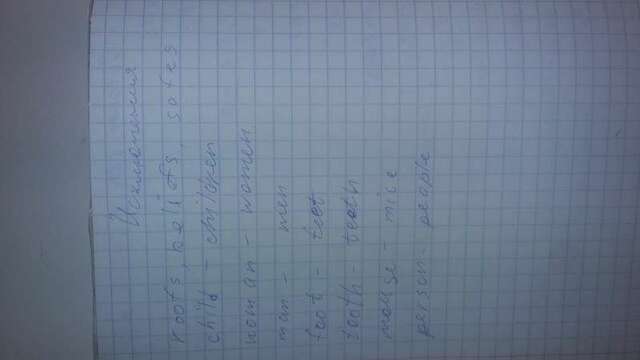 Исключения
roofs, beliefs, safes
child - children
woman - women
man - men
foot - feet
tooth - teeth
mouse - mice
person - people